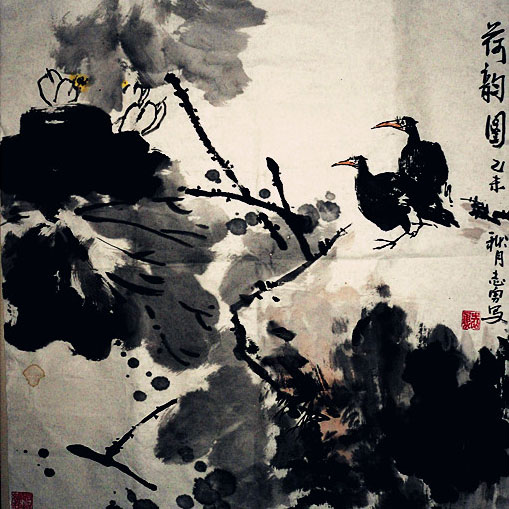 荷韵图
乙未
秋月志富写